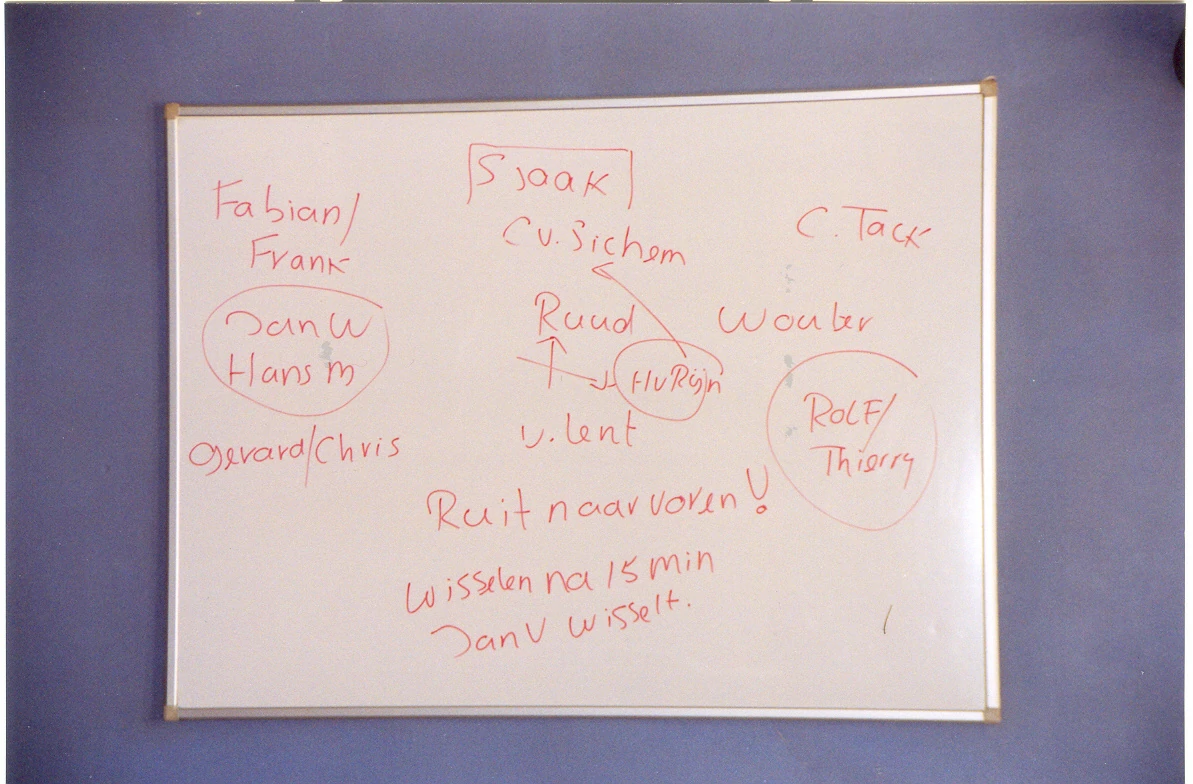 Sjaak
Fabian/
Frank
C v. Sichem
C. Tack
Jan W
Hans M
Ruud
Wouter
H v Rijn
Gerard/Chris
v. Lent
ROLF/
Thierry
Ruit naar voren!
Wisselen na 15 min
Jan V wisselt.